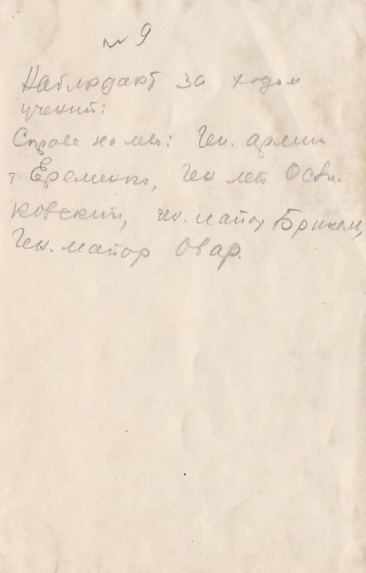 № 9
Наблюдают за ходом
учений:
Справа на лево: Ген. армии
т Еременко, Ген лей Осли-
ковский, ген. майор
Ген. майор Овар.